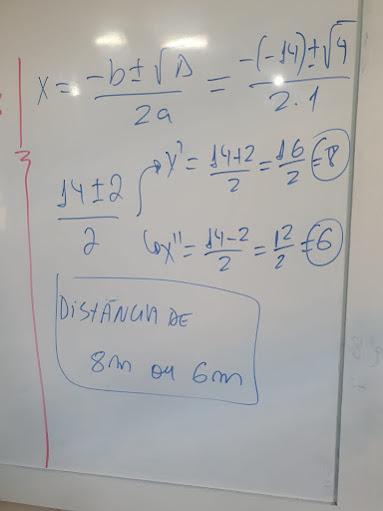 x = -b ± √Δ / 2a = -(-14) ± √4 / 2.1
14 ± 2 / 2
x' = 14+2 / 2 = 16 / 2 = 8
x'' = 14-2 / 2 = 12 / 2 = 6
DISTÂNCIA DE
8m ou 6m